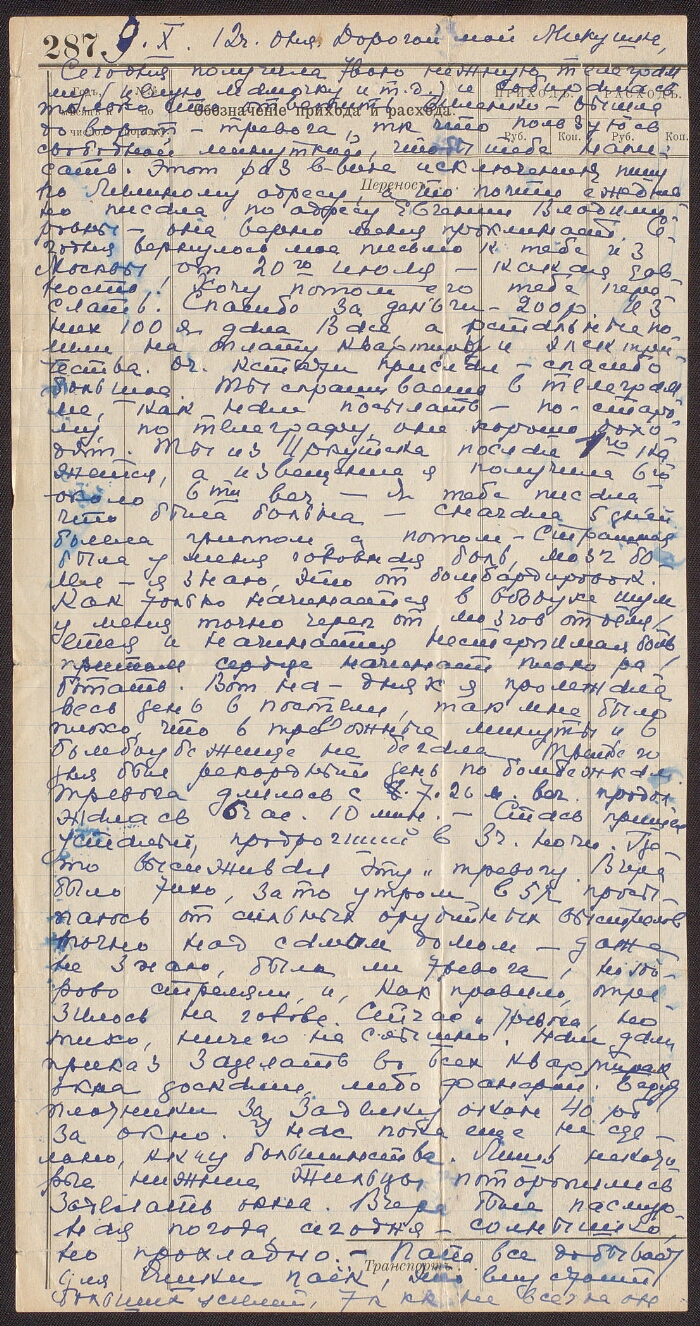 287 9.X. 12ч. дня. Дорогой мой Микушка,
Сегодня получила твою нежную телеграм
му (
свободной минуткой, чтобы тебе напи-
сать. Этот раз в виде исключения пишу
по Лёлиному адресу, а то почти ежднев
но писала по адресу Евгении Владими-
ровны – она верно меня проклинает. Се-
годня вернулось мое письмо к тебе из
Москвы от 20го июля – какая дав-
ность! Хочу потом его тебе пере
слать. Спасибо за деньги – 200р. Из
них 100 я дала Вале а остальные по
шли на оплату квартиры и электри
чества. Оч. кстати прислал – спасибо
большое. Ты спрашиваешь в телеграм
ме, как нам посылать – по-старо-
му по телеграфу они хорошо дохо
дят. Ты из Иркутска послал 1го ка
жется, а извещение я получила 6го
около 6ти веч. – Я тебе писала
что была больна – сначала 5 дней
болела гриппом, а потом – страшная
была у меня головная боль, мозг бо
лел – я знаю, это от бомбардировок.
Как только начинается в воздухе шум
у меня точно череп от мозгов отделя
ется и начинается нестерпимая боль
притом сердце начинает плохо ра
ботать. Вот на-днях я пролежала
весь день в постели, так мне было
плохо, что в тревожные минуты и в
бомбоубежище не бегала. Третьего
дня был рекордный день по бомбежкам
тревога длилась с 7.26 м. веч. продол
жалась 6 час. 10 мин. – Стась пришел
усталый, продрогший в 3ч. ночи. Где
то высиживал эту тревогу. Вчера
было тихо, зато утром, в 5½ просы-
паюсь от сильных орудийных выстрелов
точно над самым домом – даже
не знаю, была ли тревога, но здо-
рово стреляли, и, как правило, отра-
зилось на голове. Сейчас "тревога", но
тихо, ничего не слышно. Нам дали
приказ заделать во всех квартирах
окна досками, либо фанерой. Берут
плотники за заделку окон 40 рб
за окно. У нас пока еще не сде-
лано, как и у большинства. Лишь некото
рые нижние жильцы поторопились
заделать окна. Вчера была пасмур-
ная погода, сегодня – солнышко,
но прохладно. – Папа все добывает
для Чики паёк, это ему стоит
больших усилий, т.к. не всегда он
Обозначение прихода и расхода.
Приходъ.
Расходъ.
Руб. Коп. Руб. Коп.
Переносъ
Транспортъ